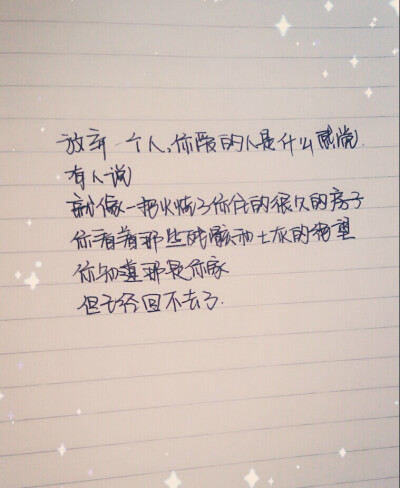 放弃一个人,你爱的人是什么感觉.
有人说
就像一把火烧了你住的很久的房子
你看着那些残骸和土灰的绝望
你知道那是你家
但已经回不去了.